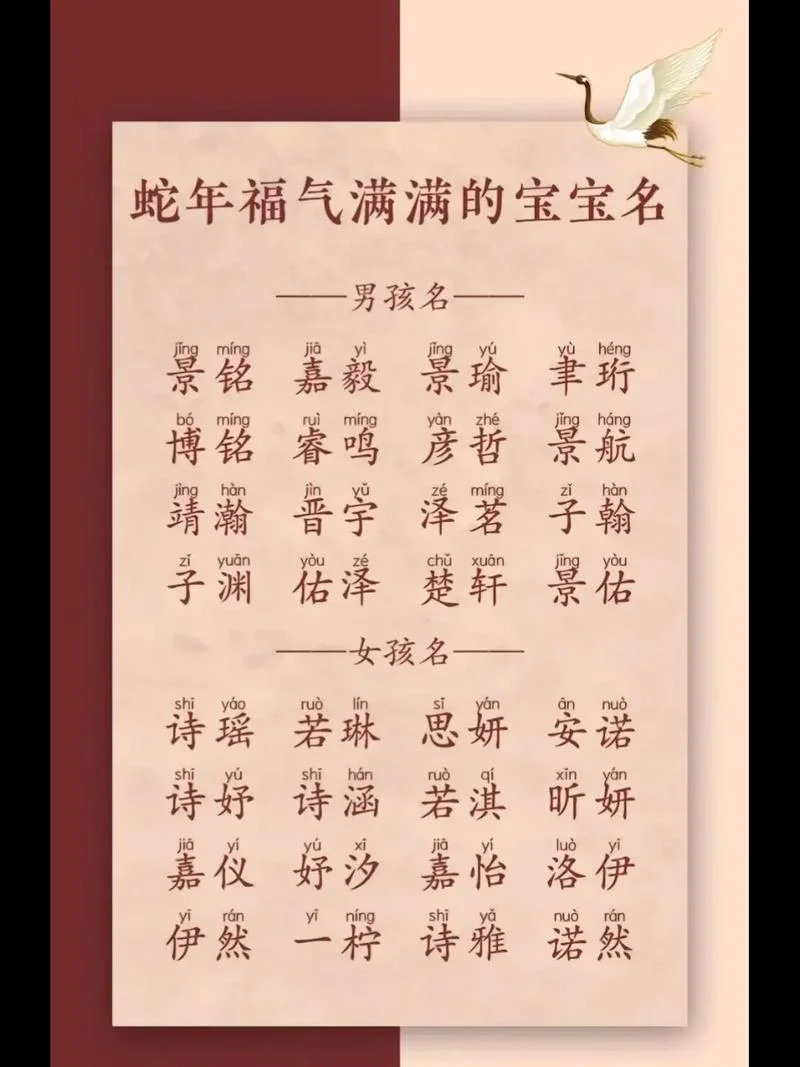 蛇年福气满满的宝宝名
——男孩名——
jǐng míng jiā yì jǐng yú yù héng
景铭 嘉毅 景瑜 聿珩
bó míng ruì míng yàn zhé jǐng háng
博铭 睿鸣 彦哲 景航
jìng hàn jìn yǔ zé míng zǐ hàn
靖瀚 晋宇 泽茗 子翰
zǐ yuān yòu zé chǔ xuān jǐng yòu
子渊 佑泽 楚轩 景佑
——女孩名——
shī yáo ruò lín sī yán ān nuò
诗瑶 若琳 思妍 安诺
shī yú shī hán ruò qí xīn yán
诗妤 诗涵 若淇 昕妍
jiā yí yú xī jiā yí luò yī
嘉仪 妤汐 嘉怡 洛伊
yī rán yī níng shī yǎ nuò rán
伊然 一柠 诗雅 诺然